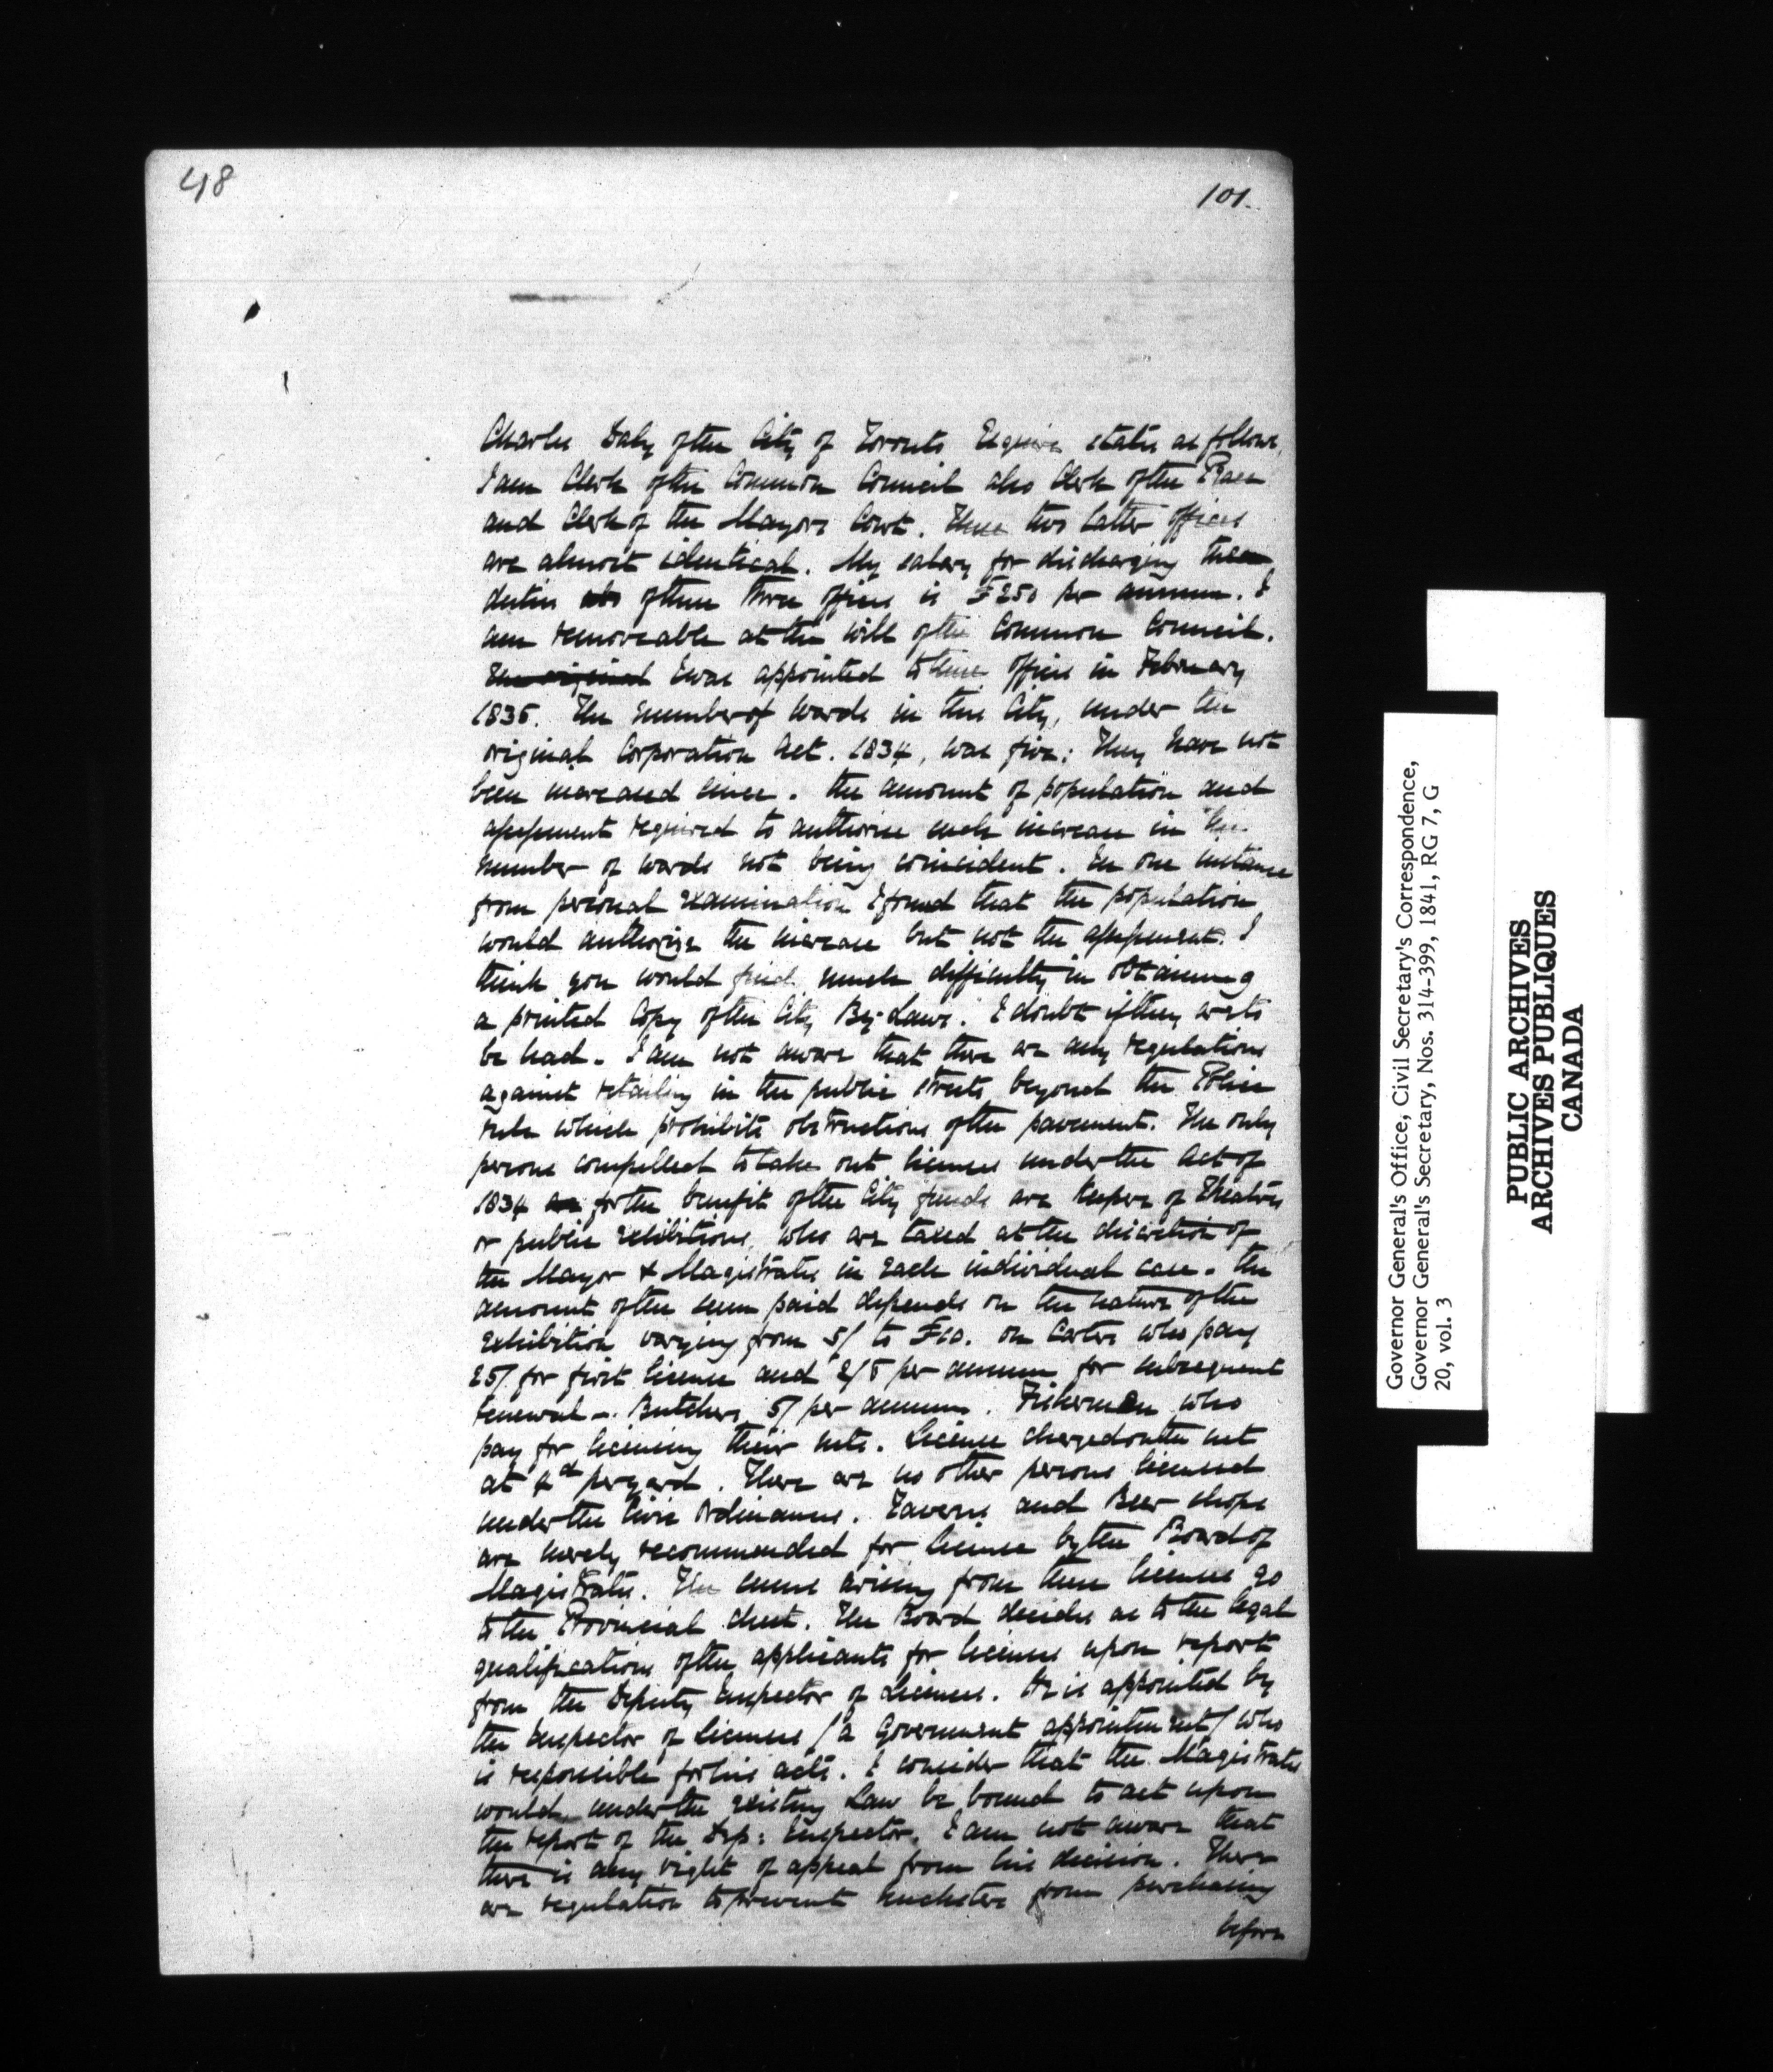 48
101.
Charles Daly of the City of Toronto Esquire states as follows,
I am Clerk of the Common Council also Clerk of the Peace
and Clerk of the Mayors Court. These two latter offices
are almost identical. My salary for discharging these
duties of these three offices is £250 per annum. I
am removeable at the will of the Common Council.
The original I was appointed to these offices in February
1835. The number of wards in this City, under the
original Corporation Act. 1834, was five: They have not
been increased since. The amount of population and
assessment required to authorise such increase in the
number of wards not being coincident. In one instance
from personal examination I found that the population
would authorize the increase but not the assessment. I
think you would find much difficulty in obtaining
a printed Copy of the City By-Laws. I doubt if they are to
be had. I am not aware that there are any regulations
against retailing in the public streets beyond the Police
rule which prohibits obstructions of the pavement. The only
persons compelled to take out licenses under the Act of
1834 for the benefit of the City funds are Keepers of Theatres
or public exhibitions, who are taxed at the discretion of
the Mayor & Magistrates in each individual case. The
amount of the sum paid depends on the nature of the
exhibition varying from 5/ to £10. on Carters who pay
25/ for first license and 2/6 per annum for subsequent
renewal -. Butchers, 5/ per annum. Fishermen who
pay for licensing their nets. License charged on the net
at 4d per yard. There are no other persons licensed
under the Civic Ordinances. Taverns and Beer shops
are merely recommended for license by the Board of
Magistrates. The sums arising from these licenses go
to the Provincial chest. The Board decides as to the legal
qualifications of the applicants for licenses upon report
from the Deputy Inspector of Licenses. He is appointed by
the Inspector of Licenses / a Government appointment / who
is responsible for his acts. I consider that the Magistrates
would, under the existing Law be bound to act upon
the report of the Dep: Inspector. I am not aware that
there is any right of appeal from his decision. There
are regulation to prevent hucksters from purchasing
before
Governor General's Office, Civil Secretary's Correspondence,
Governor General's Secretary, Nos. 314-399, 1841, RG 7, G
20, vol. 3
PUBLIC ARCHIVES
ARCHIVES PUBLIQUES
CANADA